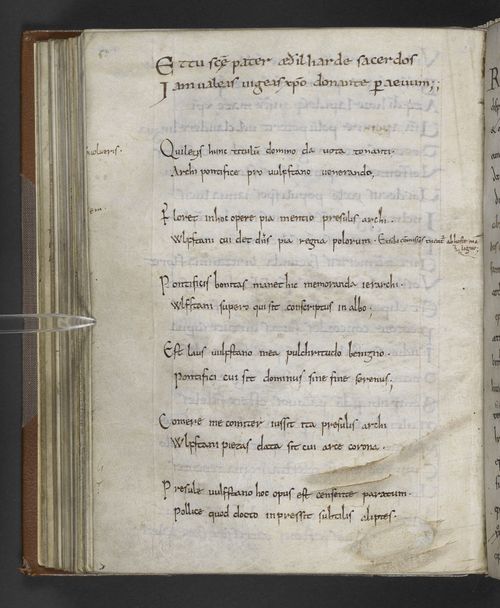 Et tu sc̄e pater ædilharde sacerdos
Iam ualeas uigeas xp̄o donante per aeuum;
Qui legis hunc titulū domino da uota tonanti.
Archi pontifice pro uulfstano uenerando,
Floret in hoc opere pia mentio presulis archi.
Wlfstani cui det dn̄s pia regna polorum.
Pontificis bonitas manet hic memoranda ierarchi.
Wlfstani supero qui sit conscriptus in albo.
Est laus uulfstano mea pulchritudo benigno.
Pontifici cui sit dominus sine fine serenus;
Comere me comiter iussit ita presulis archi
Wlfstani pietas data sit cui arce corona.
Presule uulfstano hoc opus est censente paratum.
Pollice quod docto inpressit subtilis aliptes.